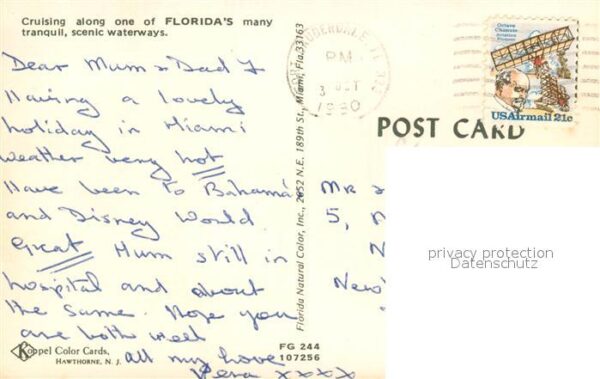 Cruising along one of FLORIDA'S many
tranquil, scenic waterways.
Dear Mum & Dad
Having a lovely
holiday in Miami
weather very hot
Have been to Bahama's
and Disney World
Great Mum still in
hospital and about
the same. Hope you
are both well
all my love
Vera xxxx
Koppel Color Cards,
HAWTHORNE, N. J.
FG 244
107256
Florida Natural Color, Inc., 2652 N.E. 189th St., Miami, Fla. 33163
PM
3 OCT
1980
Octave
Chanute
Aviation
Pioneer
USAirmail 21c
POST CARD
Mr
5, N
N
New
privacy protection
Datenschutz